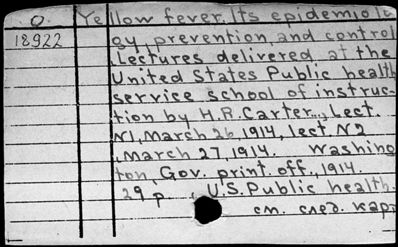 O. Yellow fever. Its epidemiolo
18922 gy, prevention, and control
Lectures delivered at the
United States Public health
service school of instruc-
tion by H.R. Carter..., Lect.
N1, March 26, 1914, lect N2
, March 27, 1914. Washing
ton, Gov. print. off., 1914.
29 p. , U.S. Public health.
см. след. карт